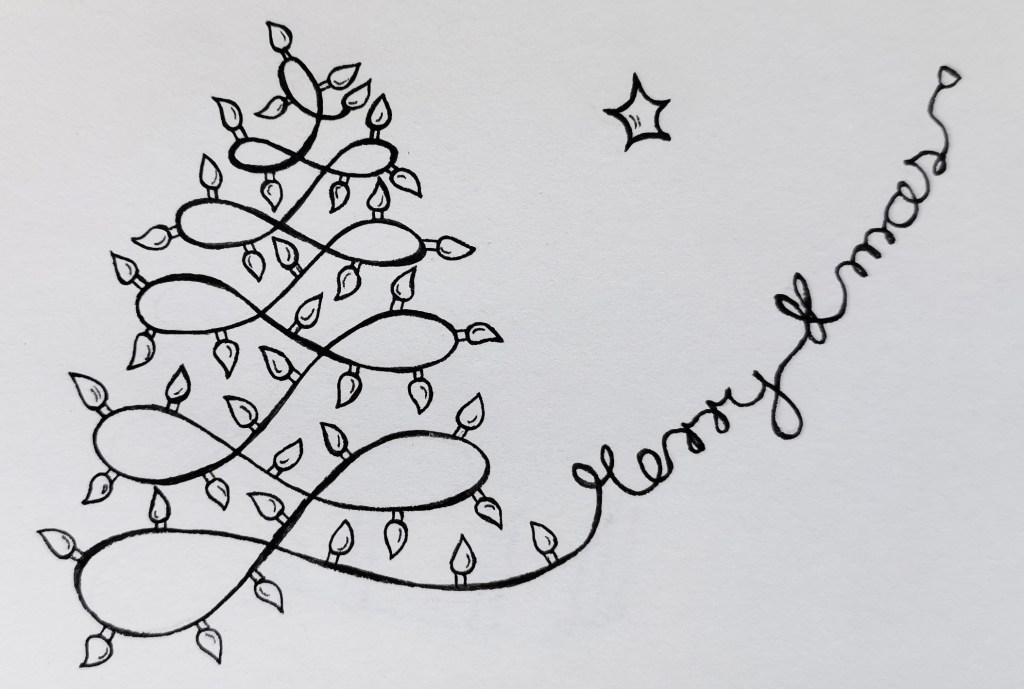 Merry Xmas